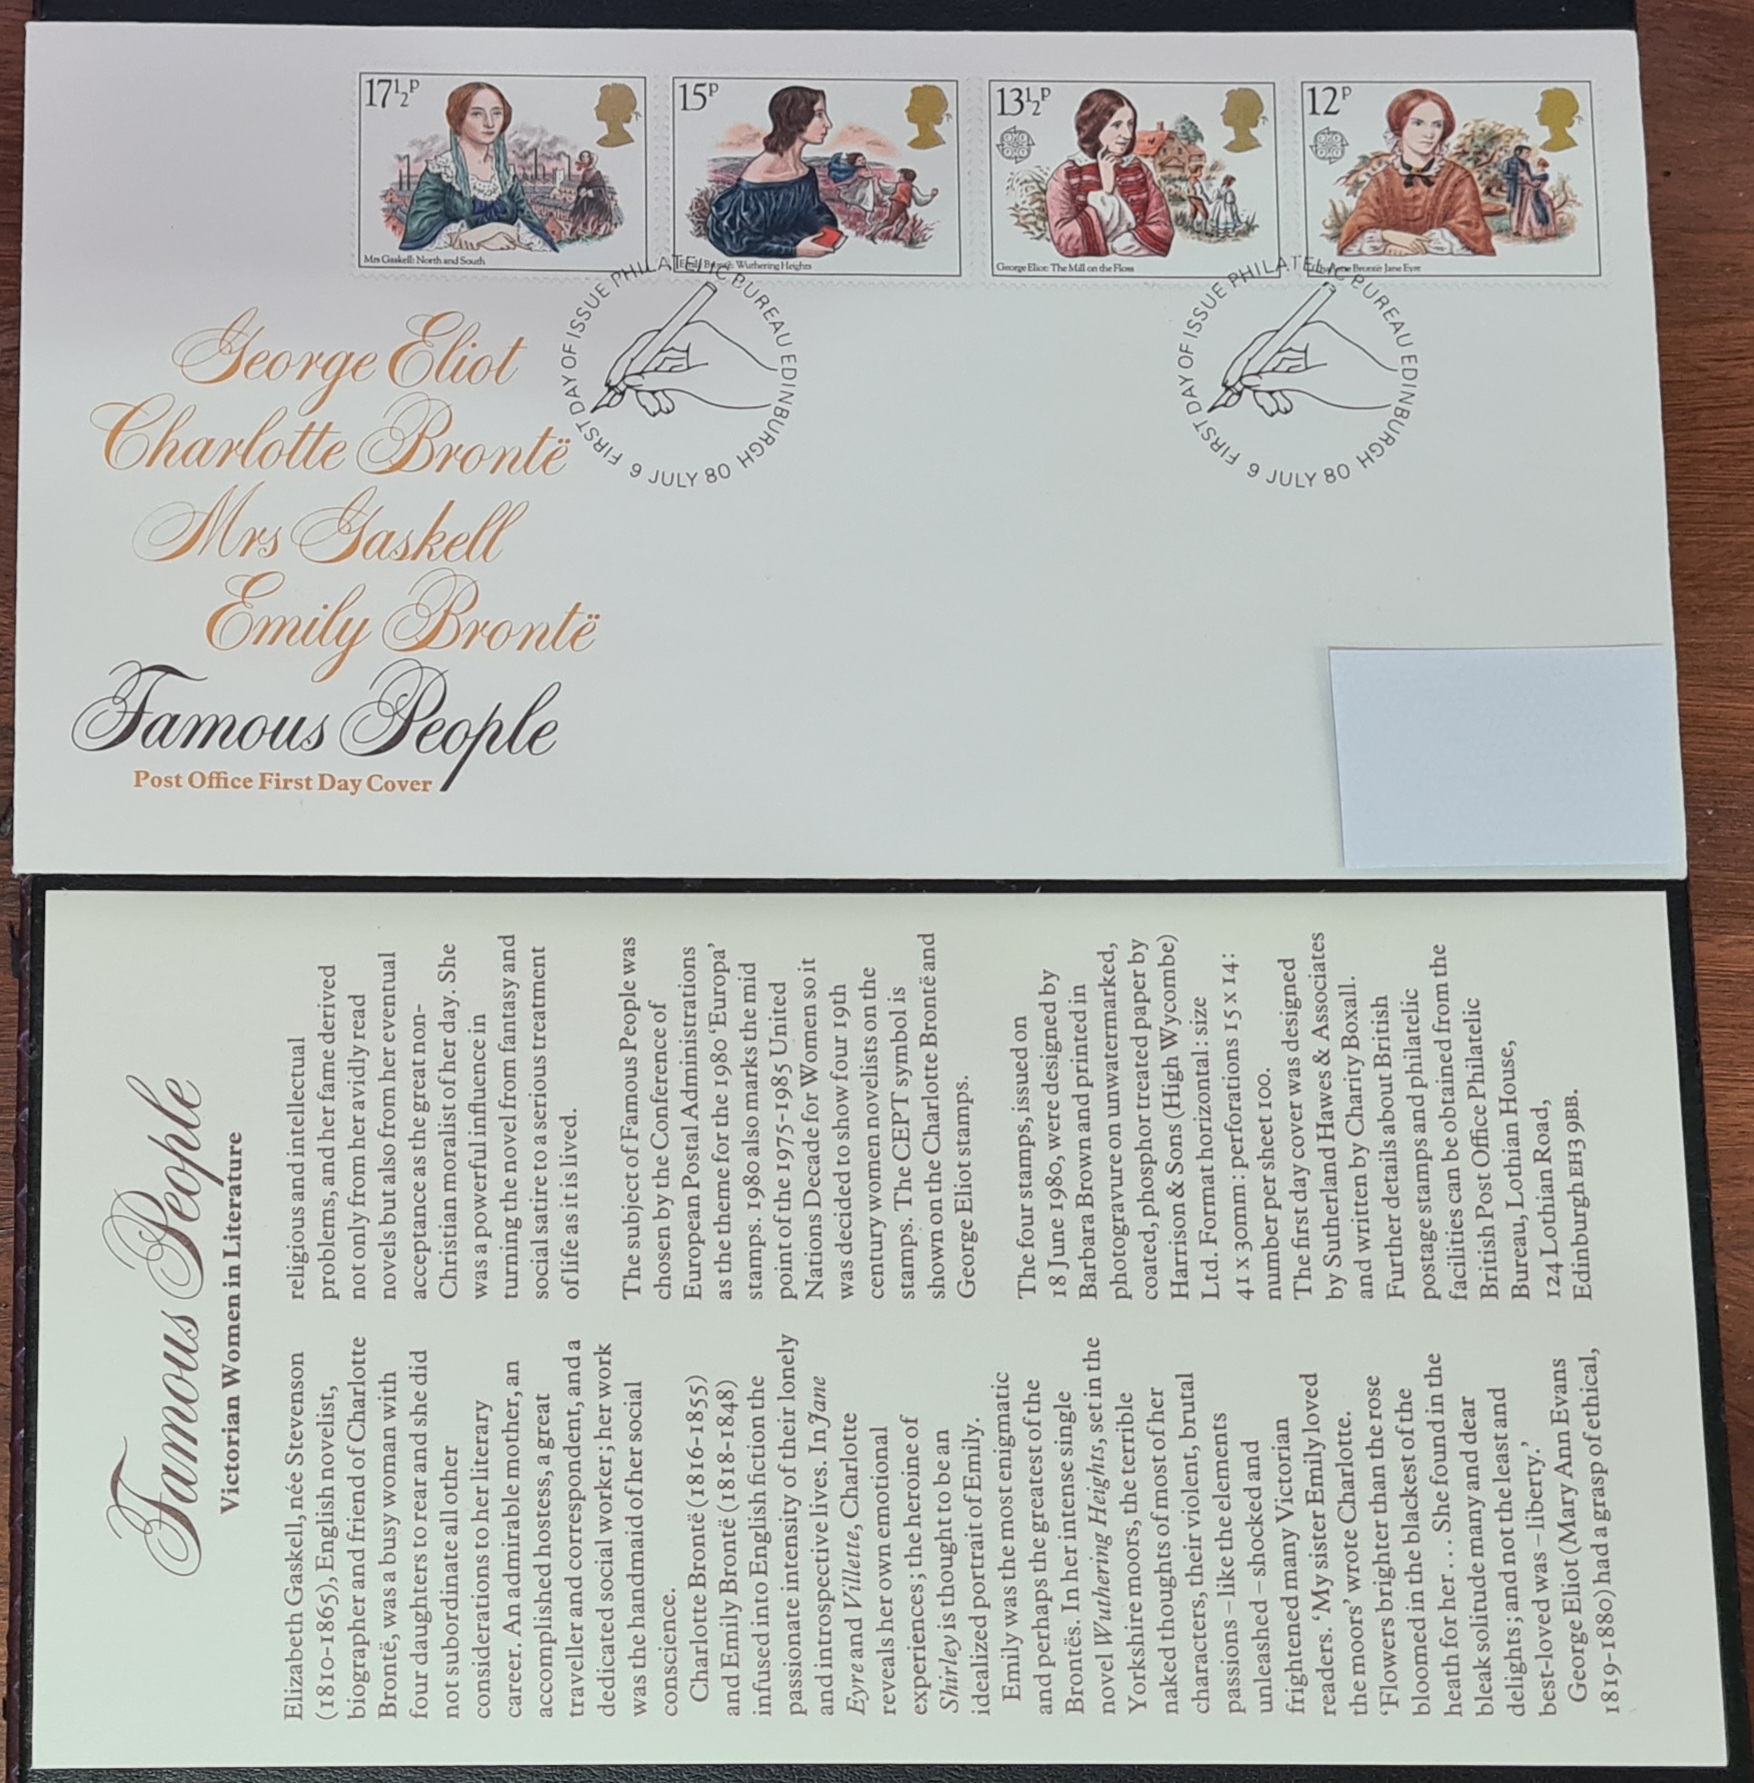 17½P
Mrs Gaskell: North and South
15P
Emily Brontë: Wuthering Heights
13½P
George Eliot: The Mill on the Floss
12P
Charlotte Brontë: Jane Eyre
FIRST DAY OF ISSUE PHILATELIC BUREAU EDINBURGH
9 JULY 80
FIRST DAY OF ISSUE PHILATELIC BUREAU EDINBURGH
9 JULY 80
George Eliot
Charlotte Brontë
Mrs Gaskell
Emily Brontë
Famous People
Post Office First Day Cover
Famous People
Victorian Women in Literature
Elizabeth Gaskell, née Stevenson
(1810-1865), English novelist,
biographer and friend of Charlotte
Brontë, was a busy woman with
four daughters to rear and she did
not subordinate all other
considerations to her literary
career. An admirable mother, an
accomplished hostess, a great
traveller and correspondent, and a
dedicated social worker; her work
was the handmaid of her social
conscience.
Charlotte Brontë (1816-1855)
and Emily Brontë (1818-1848)
infused into English fiction the
passionate intensity of their lonely
and introspective lives. In Jane
Eyre and Villette, Charlotte
reveals her own emotional
experiences; the heroine of
Shirley is thought to be an
idealized portrait of Emily.
Emily was the most enigmatic
and perhaps the greatest of the
Brontës. In her intense single
novel Wuthering Heights, set in the
Yorkshire moors, the terrible
naked thoughts of most of her
characters, their violent, brutal
passions – like the elements
unleashed – shocked and
frightened many Victorian
readers. ‘My sister Emily loved
the moors’ wrote Charlotte.
‘Flowers brighter than the rose
bloomed in the blackest of the
heath for her . . . She found in the
bleak solitude many and dear
delights; and not the least and
best-loved was – liberty.’
George Eliot (Mary Ann Evans
1819-1880) had a grasp of ethical,
religious and intellectual
problems, and her fame derived
not only from her avidly read
novels but also from her eventual
acceptance as the great non-
Christian moralist of her day. She
was a powerful influence in
turning the novel from fantasy and
social satire to a serious treatment
of life as it is lived.
The subject of Famous People was
chosen by the Conference of
European Postal Administrations
as the theme for the 1980 ‘Europa’
stamps. 1980 also marks the mid
point of the 1975-1985 United
Nations Decade for Women so it
was decided to show four 19th
century women novelists on the
stamps. The CEPT symbol is
shown on the Charlotte Brontë and
George Eliot stamps.
The four stamps, issued on
18 June 1980, were designed by
Barbara Brown and printed in
photogravure on unwatermarked,
coated, phosphor treated paper by
Harrison & Sons (High Wycombe)
Ltd. Format horizontal: size
41 x 30mm: perforations 15 x 14:
number per sheet 100.
The first day cover was designed
by Sutherland Hawes & Associates
and written by Charity Boxall.
Further details about British
postage stamps and philatelic
facilities can be obtained from the
British Post Office Philatelic
Bureau, Lothian House,
124 Lothian Road,
Edinburgh EH3 9BB.